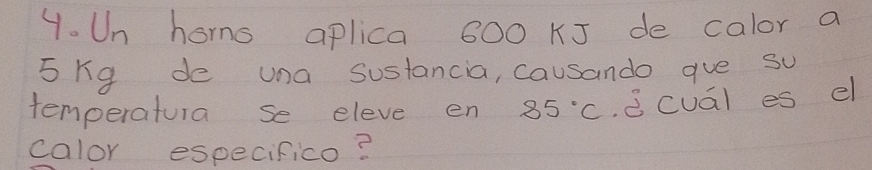 4. Un horno aplica 600 KJ de calor a
5 Kg de una sustancia, causando que su
temperatura se eleve en 85°C. ¿cuál es el
calor especifico?